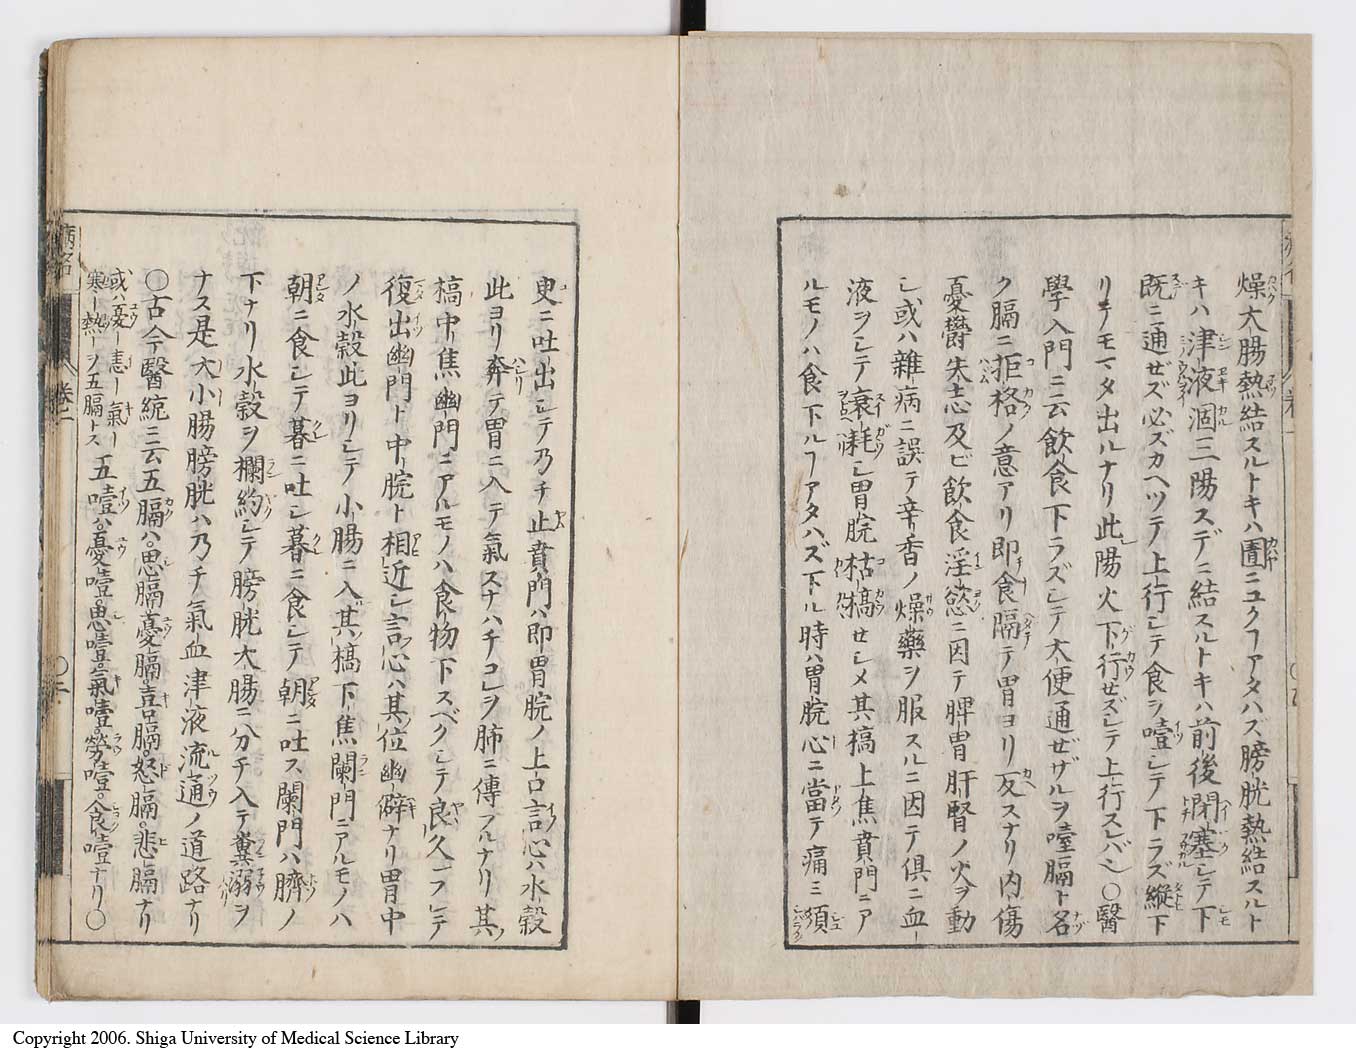 燥大腸熱結スルトキハ圊ニユクヿアタハズ膀胱熱結スルト
キハ津液涸三陽スデニ結スルトキハ前後閉塞シテ下
既ニ通ゼズ必ズカヘツテ上行シテ食ヲ噎シテ下ラズ縦下
リテモマタ出ルナリ此陽火下行ゼズシテ上行スレバシ〇醫
學入門ニ云飲食下ラズシテ大便通ゼザルヲ噎膈ト名
ク膈ニ拒格ノ意アリ即食隔テ胃ヨリ反スナリ内傷
憂鬱失志及ビ飲食淫慾ニ因テ脾胃肝腎ノ火ヲ動
シ或ハ雜病ニ誤テ辛香ノ燥藥ヲ服スルニ因テ俱ニ血
液ヲシテ衰耗シ胃脘枯槁セシメ其槁上焦賁門ニア
ルモノハ食下ルヿアタハズ下ル時ハ胃脘心ニ當テ痛ミ須
臾ニ吐出シテ乃チ止賁門ハ即胃脘ノ上口言心ハ水穀
此ヨリ奔テ胃ニ入テ氣スナハチコレヲ肺ニ傳フルナリ其
槁中焦幽門ニアルモノハ食物下スベクシテ良久フシテ
復出幽門ト中脘ト相近シ言心ハ其位幽僻ナリ胃中
ノ水穀此ヨリシテ小腸ニ入其槁下焦闌門ニアルモノハ
朝ニ食シテ暮ニ吐シ暮ニ食シテ朝ニ吐ス闌門ハ臍ノ
下ナリ水穀ヲ欄約シテ膀胱大腸ニ分チ入テ糞溺ヲ
ナス是大小腸膀胱ハ乃チ氣血津液流通ノ道路ナリ
〇古今醫統ニ云五膈ハ思膈憂膈喜膈怒膈悲膈ナリ
或ハ憂恚氣寒熱ヲ五膈トス五噎ハ憂噎思噎氣噎勞噎食噎ナリ〇
病名 卷二
Copyright 2006. Shiga University of Medical Science Library